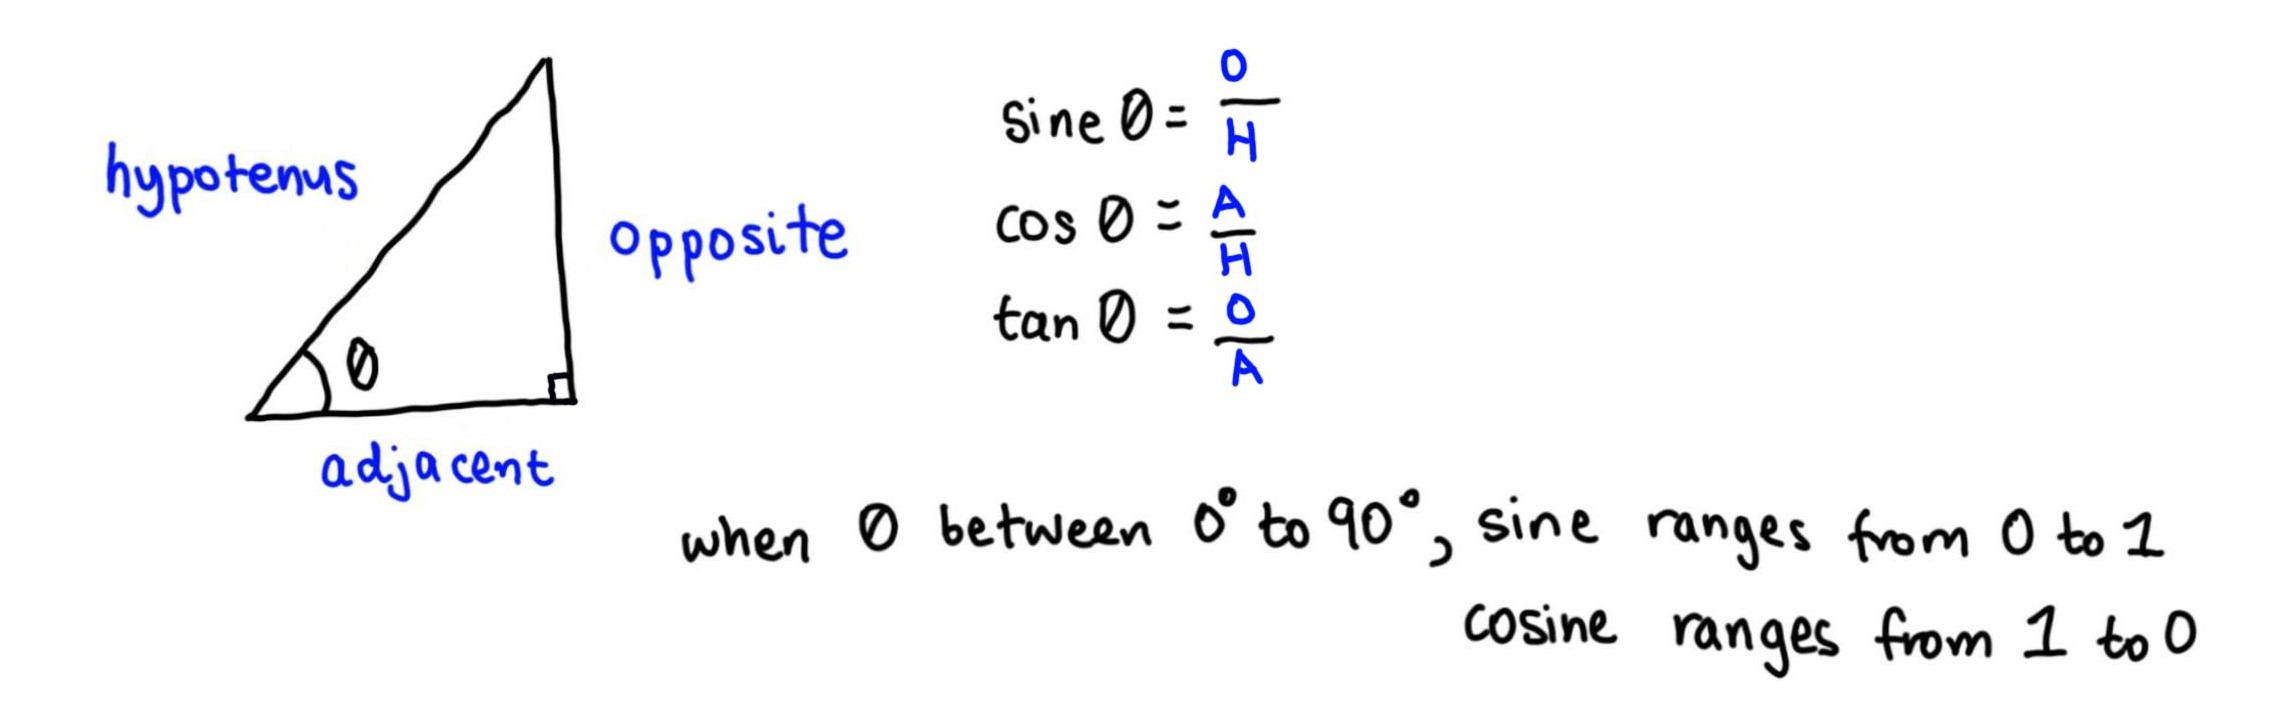 hypotenus
opposite
θ
adjacent
sine θ = O/H
cos θ = A/H
tan θ = O/A
when θ between 0° to 90°, sine ranges from 0 to 1
cosine ranges from 1 to 0